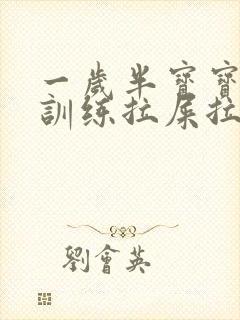 一歲半寶寶
訓練拉屎拉
劉會英